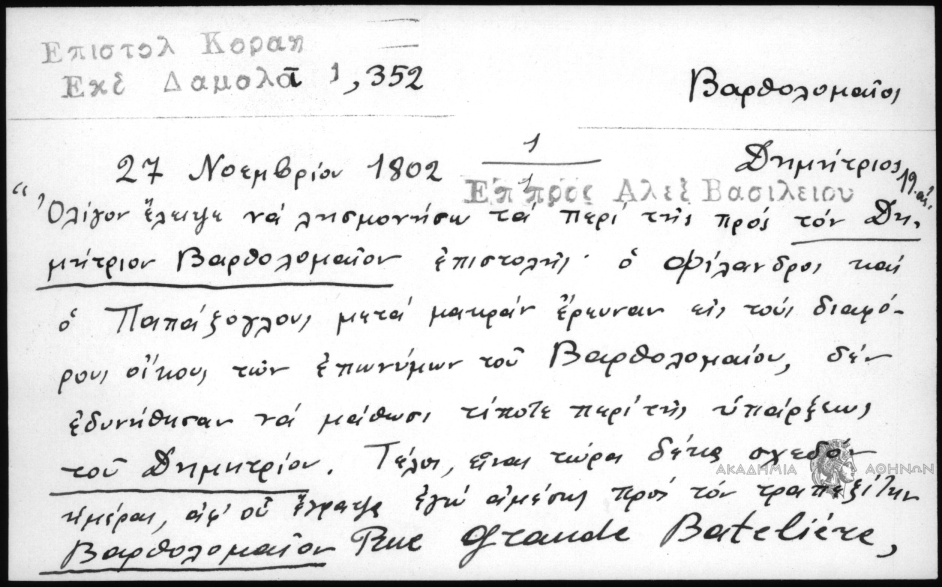 Επιστολ Κοραη
Εκδ Δαμαλᾶ 1,352
Βαρθολομαῖος
27 Νοεμβρίου 1802
1
1
Δημήτριος 19. αἰ.
Επ προς Αλεξ Βασιλειου
“Ὀλίγον ἔλειψε νά λησμονήσω τά περί τῆς πρός τόν Δη-
μήτριον Βαρθολομαῖον ἐπιστολῆς· ὁ Φίλανδρος καί
ὁ Παπάζογλους μετά μακράν ἔρευναν εἰς τούς διαφό-
ρους οἴκους τῶν ἐπωνύμων τοῦ Βαρθολομαίου, δέν
ἐδυνήθησαν νά μάθωσι τίποτε περί τῆς ὑπάρξεως
τοῦ Δημητρίου. Τέλος, εἶναι τώρα δέκα σχεδόν
ἡμέραι, ἀφ' οὗ ἔγραψα ἐγώ ἀμέσως πρός τόν τραπεζίτην
Βαρθολομαῖον Rue Grande Batelière,
ΑΚΑΔΗΜΙΑ ΑΘΗΝΩΝ